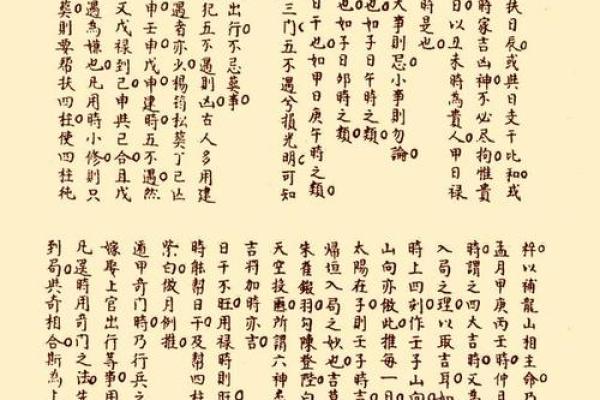 扶日辰或與日支干比和或
時家吉凶神不必盡拘惟貴
日以丑未時為貴人甲日祿
時是也
大事則忌小事則勿論
也如子日午時之類
也如子日卯時之類
日干也如甲日庚午時之類
三門五不遇兮損光明可知
出行不忌葬事
犯五不遇則凶古人多用建
遇者亦少楊筠松葬丁巳亡
申壬申戊申建時五不遇然
又戊祿到巳申與巳合且戊
遇為嫌也凡用時小修則只
葬則要幫扶四柱使四柱純
粹以補龍山相主命乃
孟月甲庚丙壬時仲月
時謂之四大吉時又為
入局之理以取吉耳如
時上四刻作壬子山向
山向亦倣此推每一日
太陽在子則壬子時吉
歸垣入局之妙也吉莫
朱雀鎩羽勾陳登陛白
天空投匭所謂六神悉
吉符加時亦吉
日干不旺用祿時則旺
時能幫日干及幫四柱
紫白倣月例推
遁甲奇門時乃行兵之
嫁娶上官出行等事用
凡選時用奇門之法
到局與奇相合斯為上